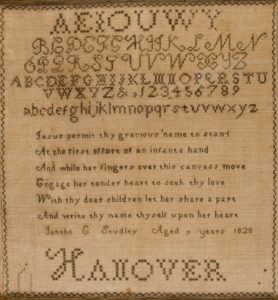 AEIOUWY
BCDEFGHIJKLMN
OPQRSTUVWXYZ
ABCDEFGHIJKLMNOPQRSTU
VWXYZ&,123456789
abcdefghijklmnopqrstuvwxyz
Jesus permit thy gracious name to stand
At the first effort of an infants hand
And while her fingers over this canvass move
Engage her tender heart to seek thy love
With thy dear children let her share a part
And write thy name thyself upon her heart
E Studley Aged 9 years 1828
HANOVER